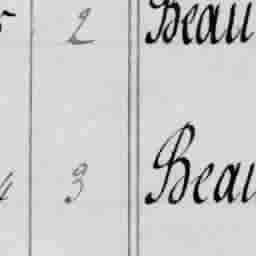 2 Beau
3 Beau